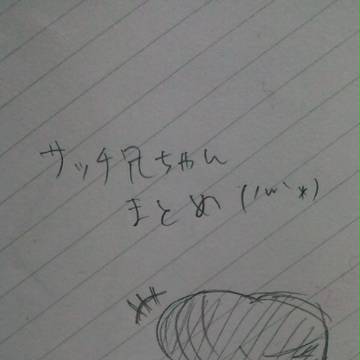 サッチ兄ちゃん
まとめ(ノω`*)